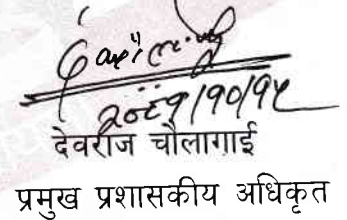 २०८१/१०/१५
देवराज चौलागाई
प्रमुख प्रशासकीय अधिकृत